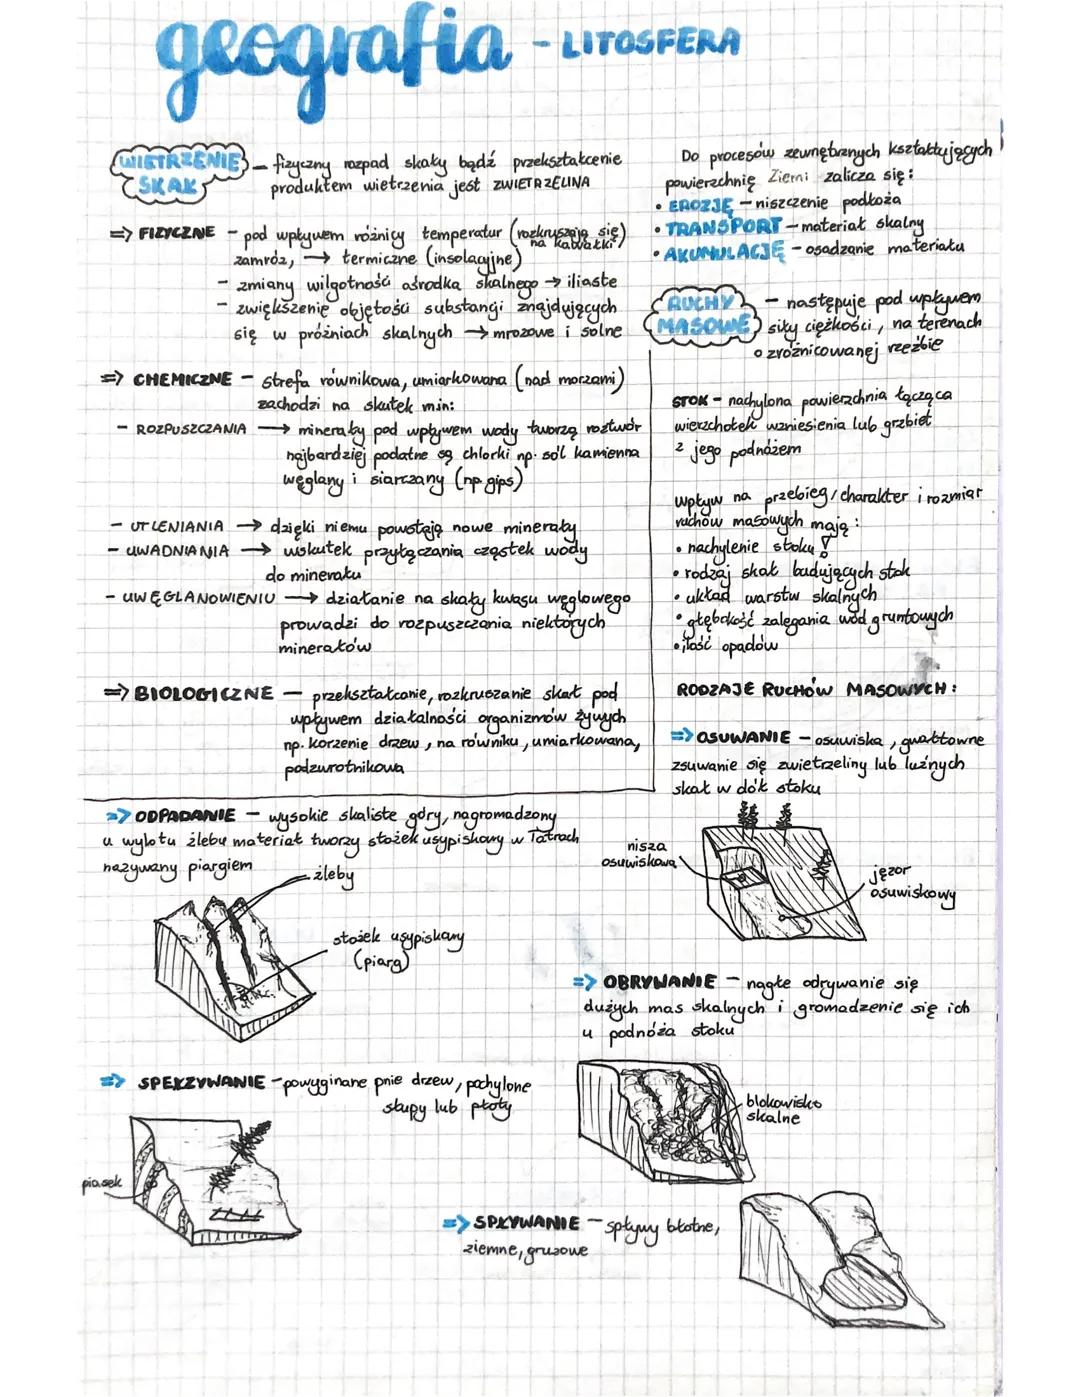 geografia - LITOSFERA
WIETRZENIE SKAŁ - fizyczny rozpad skały bądź przekształcenie
produktem wietrzenia jest ZWIETRZELINA
=> FIZYCZNE - pod wpływem różnicy temperatur (rozkruszają się na kawałki)
zamróz, → termiczne (insolacyjne)
- zmiany wilgotności ośrodka skalnego → iliaste
- zwiększenie objętości substancji znajdujących
się w próżniach skalnych → mrozowe i solne
=> CHEMICZNE - strefa równikowa, umiarkowana (nad morzami)
zachodzi na skutek min:
- ROZPUSZCZANIA → minerały pod wpływem wody tworzą roztwór
najbardziej podatne są chlorki np. sól kamienna
węglany i siarczany (np. gips)
- UTLENIANIA → dzięki niemu powstają nowe minerały
- UWADNIANIA → wskutek przyłączania cząstek wody
do minerału
- UWĘGLANOWIENIU → działanie na skały kwasu węglowego
prowadzi do rozpuszczania niektórych
minerałów
=> BIOLOGICZNE - przekształcanie, rozkruszanie skał pod
wpływem działalności organizmów żywych
np. korzenie drzew, na równiku, umiarkowana,
podzwrotnikowa
Do procesów zewnętrznych kształtujących
powierzchnię Ziemi zalicza się:
• EROZJĘ - niszczenie podłoża
• TRANSPORT - materiał skalny
• AKUMULACJĘ - osadzanie materiału
RUCHY MASOWE - następuje pod wpływem
siły ciężkości, na terenach
o zróżnicowanej rzeźbie
STOK - nachylona powierzchnia łącząca
wierzchołek wzniesienia lub grzbiet
z jego podnóżem
Wpływ na przebieg/charakter i rozmiar
ruchów masowych mają:
• nachylenie stoku!
• rodzaj skał budujących stok
• układ warstw skalnych
• głębokość zalegania wód gruntowych
• ilość opadów
RODZAJE RUCHÓW MASOWYCH:
=> OSUWANIE - osuwiska, gwałtowne
zsuwanie się zwietrzeliny lub luźnych
skał w dół stoku
nisza
osuwiskowa
jęzor
osuwiskowy
=> ODPADANIE - wysokie skaliste góry, nagromadzony
u wylotu żlebu materiał tworzy stożek usypiskowy w Tatrach
nazywany piargiem
żleby
stożek usypiskowy
(piarg)
=> OBRYWANIE - nagłe odrywanie się
dużych mas skalnych i gromadzenie się ich
u podnóża stoku
blokowisko
skalne
=> SPEŁZYWANIE - powyginane pnie drzew, pochylone
słupy lub płoty
piasek
=> SPŁYWANIE - spływy błotne,
ziemne, gruzowe